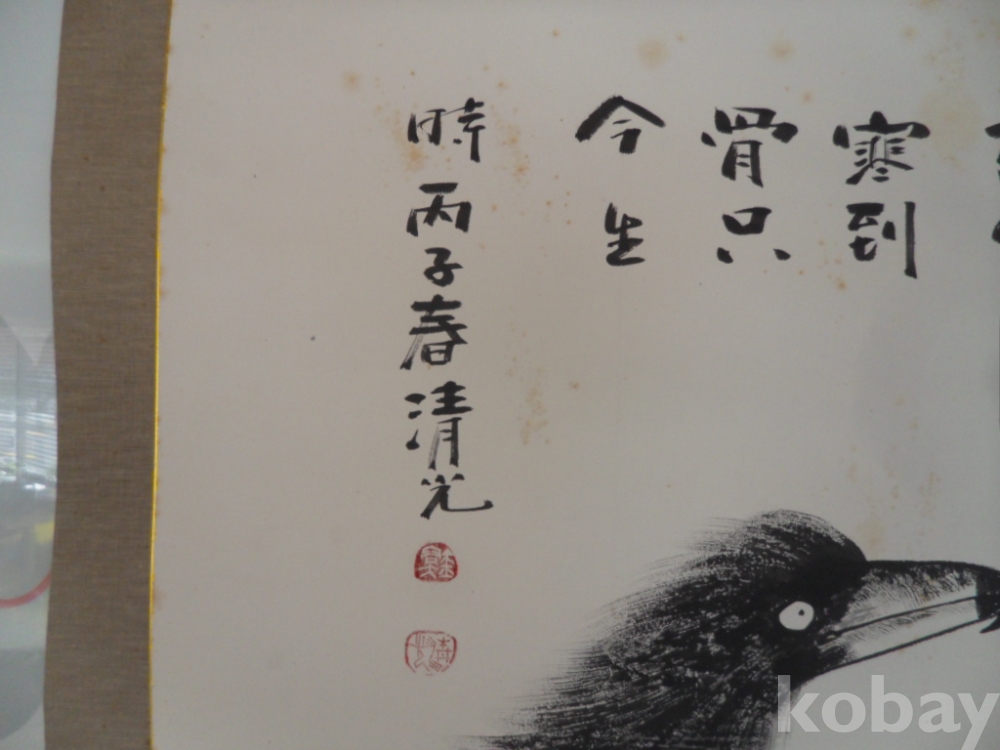 寒到
骨只
今生
時丙子春清光
kobay